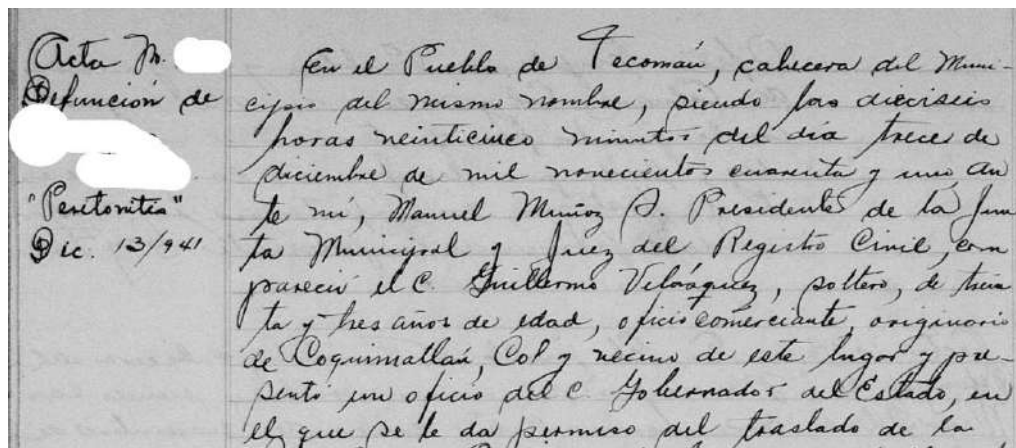 Acta N.
Defunción de
"Peritonitis"
Dic. 13/941
En el Pueblo de Tecomán, cabecera del Muni-
cipio del mismo nombre, siendo las dieciseis
horas veinticinco minutos del día trece de
diciembre de mil novecientos cuarenta y uno, an
te mí, Manuel Muñoz S. Presidente de la Jun
ta Municipal y Juez del Registro Civil, com
pareció el C. Guillermo Velázquez, soltero, de trein
ta y tres años de edad, oficio comerciante, originario
de Coquimatlán, Col y vecino de este lugar y pre-
sentó un oficio del C. Gobernador del Estado, en
el que se le da permiso del traslado de la